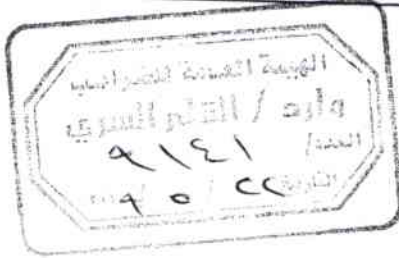 الهيئة العامة للضرائب
وارد / القلم السري
العدد/ ٩١٤١
التاريخ ٢٢ / ٥